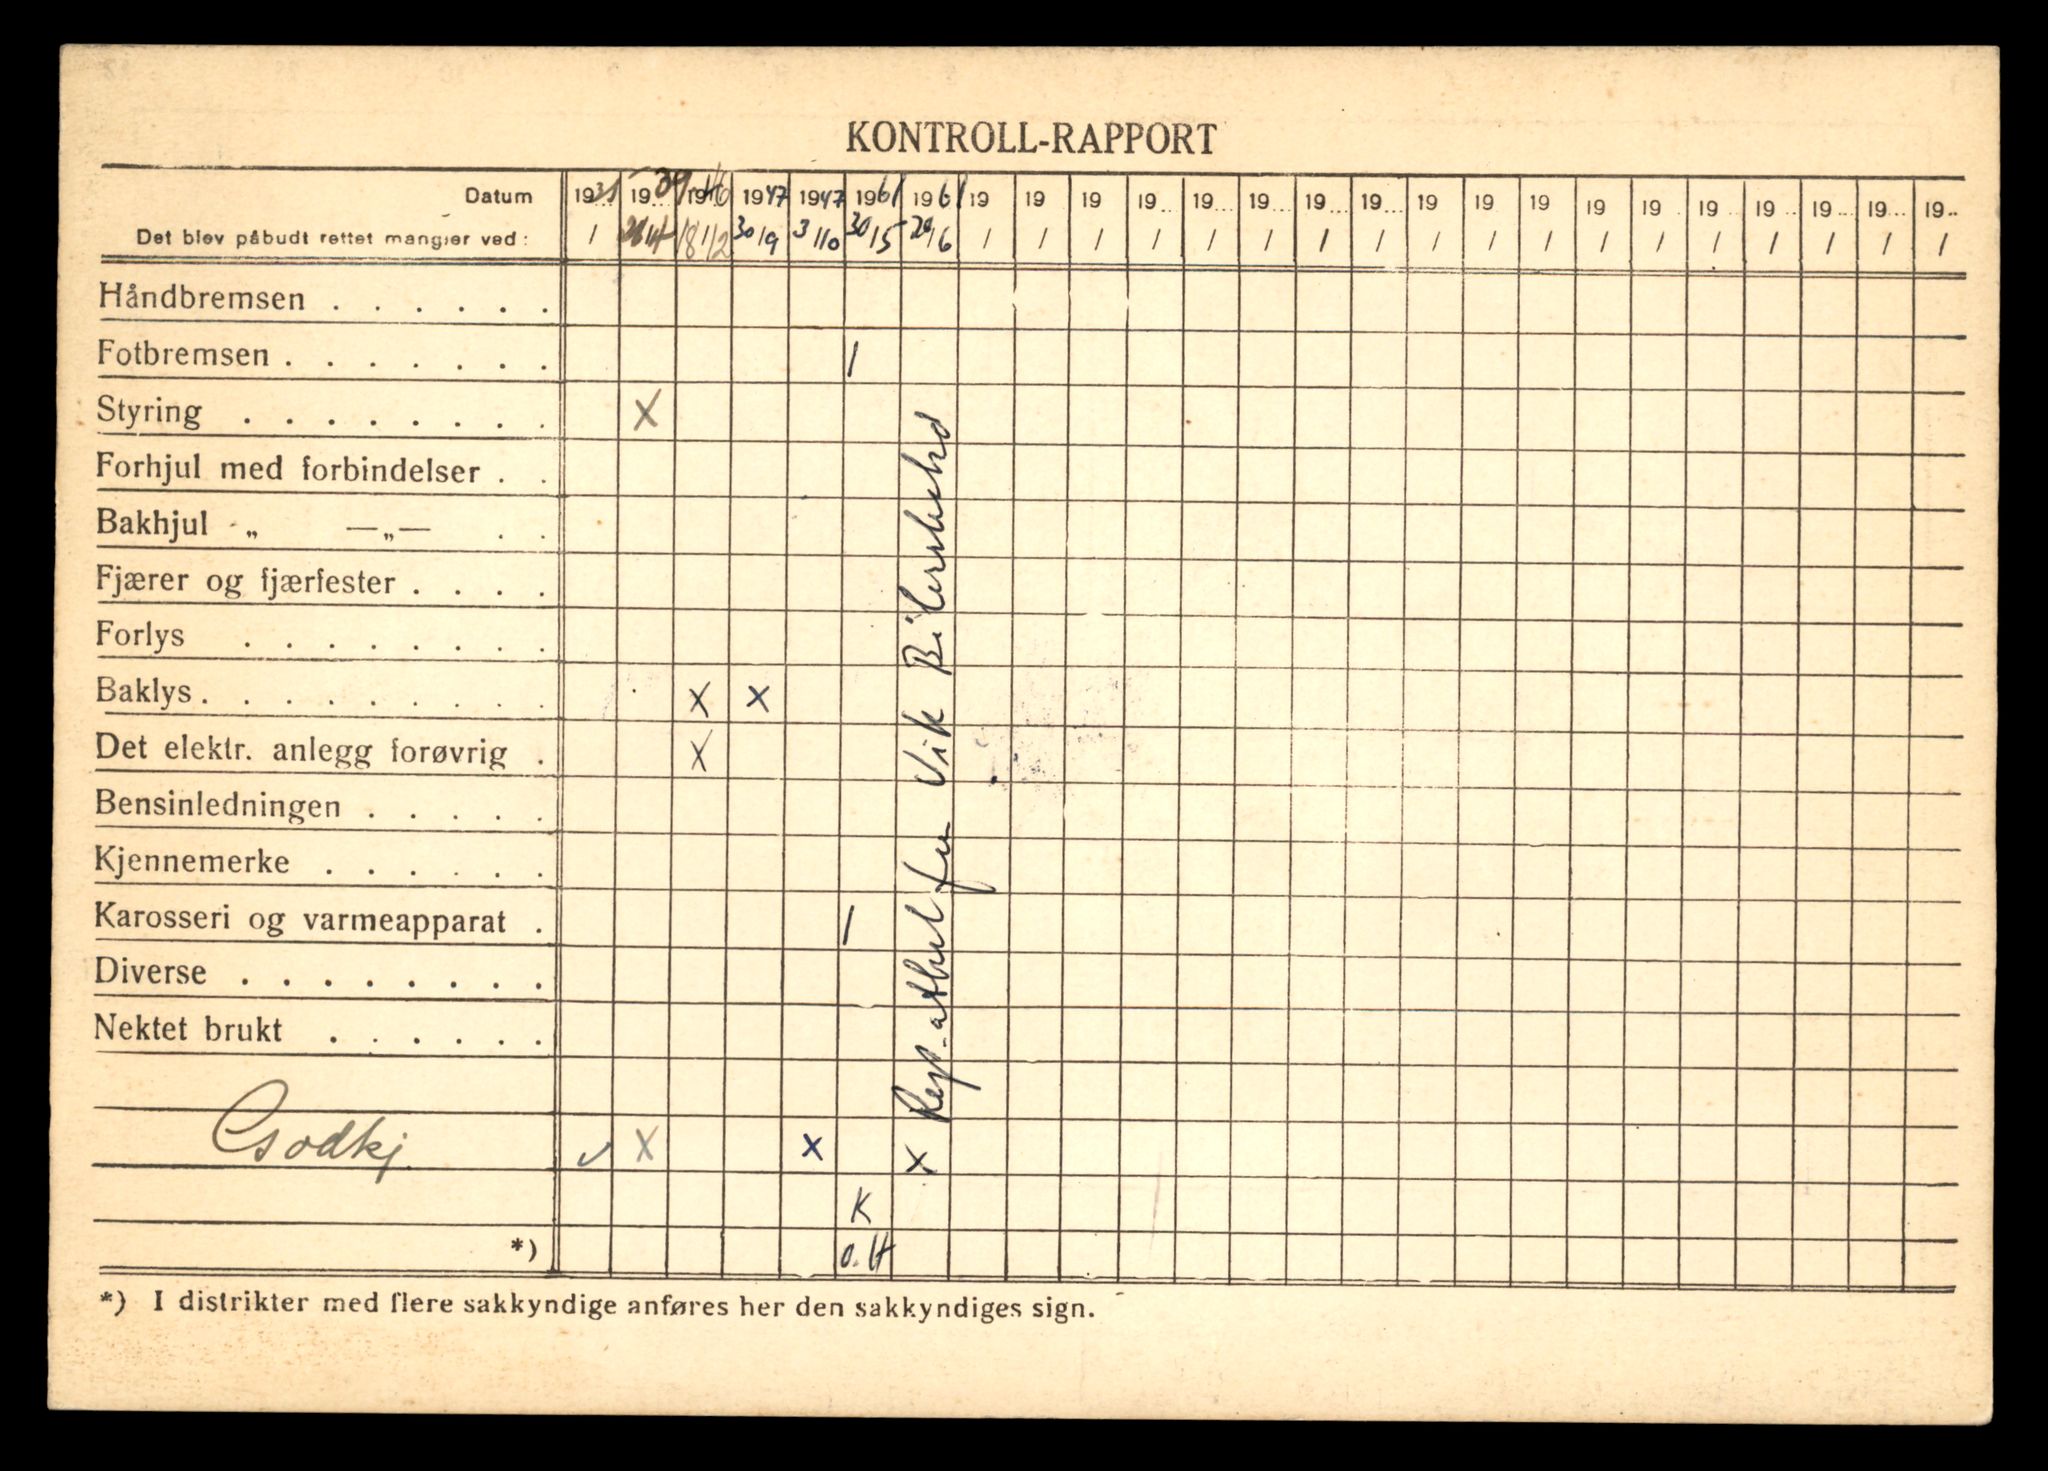 KONTROLL-RAPPORT
Datum 19 31 19 39 19 46 1947 1947 1961 1961 19 19 19 19 19 19 19 19 19 19 19 19 19 19 19 19 19 19
Det blev påbudt rettet mangler ved: / 28/4 18/12 30/9 3/10 30/5 29/6 / / / / / / / / / / / / / / / / / /
Håndbremsen . . . . . .
Fotbremsen . . . . . . . /
Styring . . . . . . . . X
Forhjul med forbindelser . .
Bakhjul „ —„— . .
Fjærer og fjærfester . . . .
Forlys . . . . . . . .
Baklys . . . . . . . . . X X
Det elektr. anlegg forøvrig . X
Bensinledningen . . . . .
Kjennemerke . . . . . .
Karosseri og varmeapparat . /
Diverse . . . . . . . .
Nektet brukt . . . . . .
Godkj. ✓ X X X
K
*) O.H
Rep. Vik
*) I distrikter med flere sakkyndige anføres her den sakkyndiges sign.